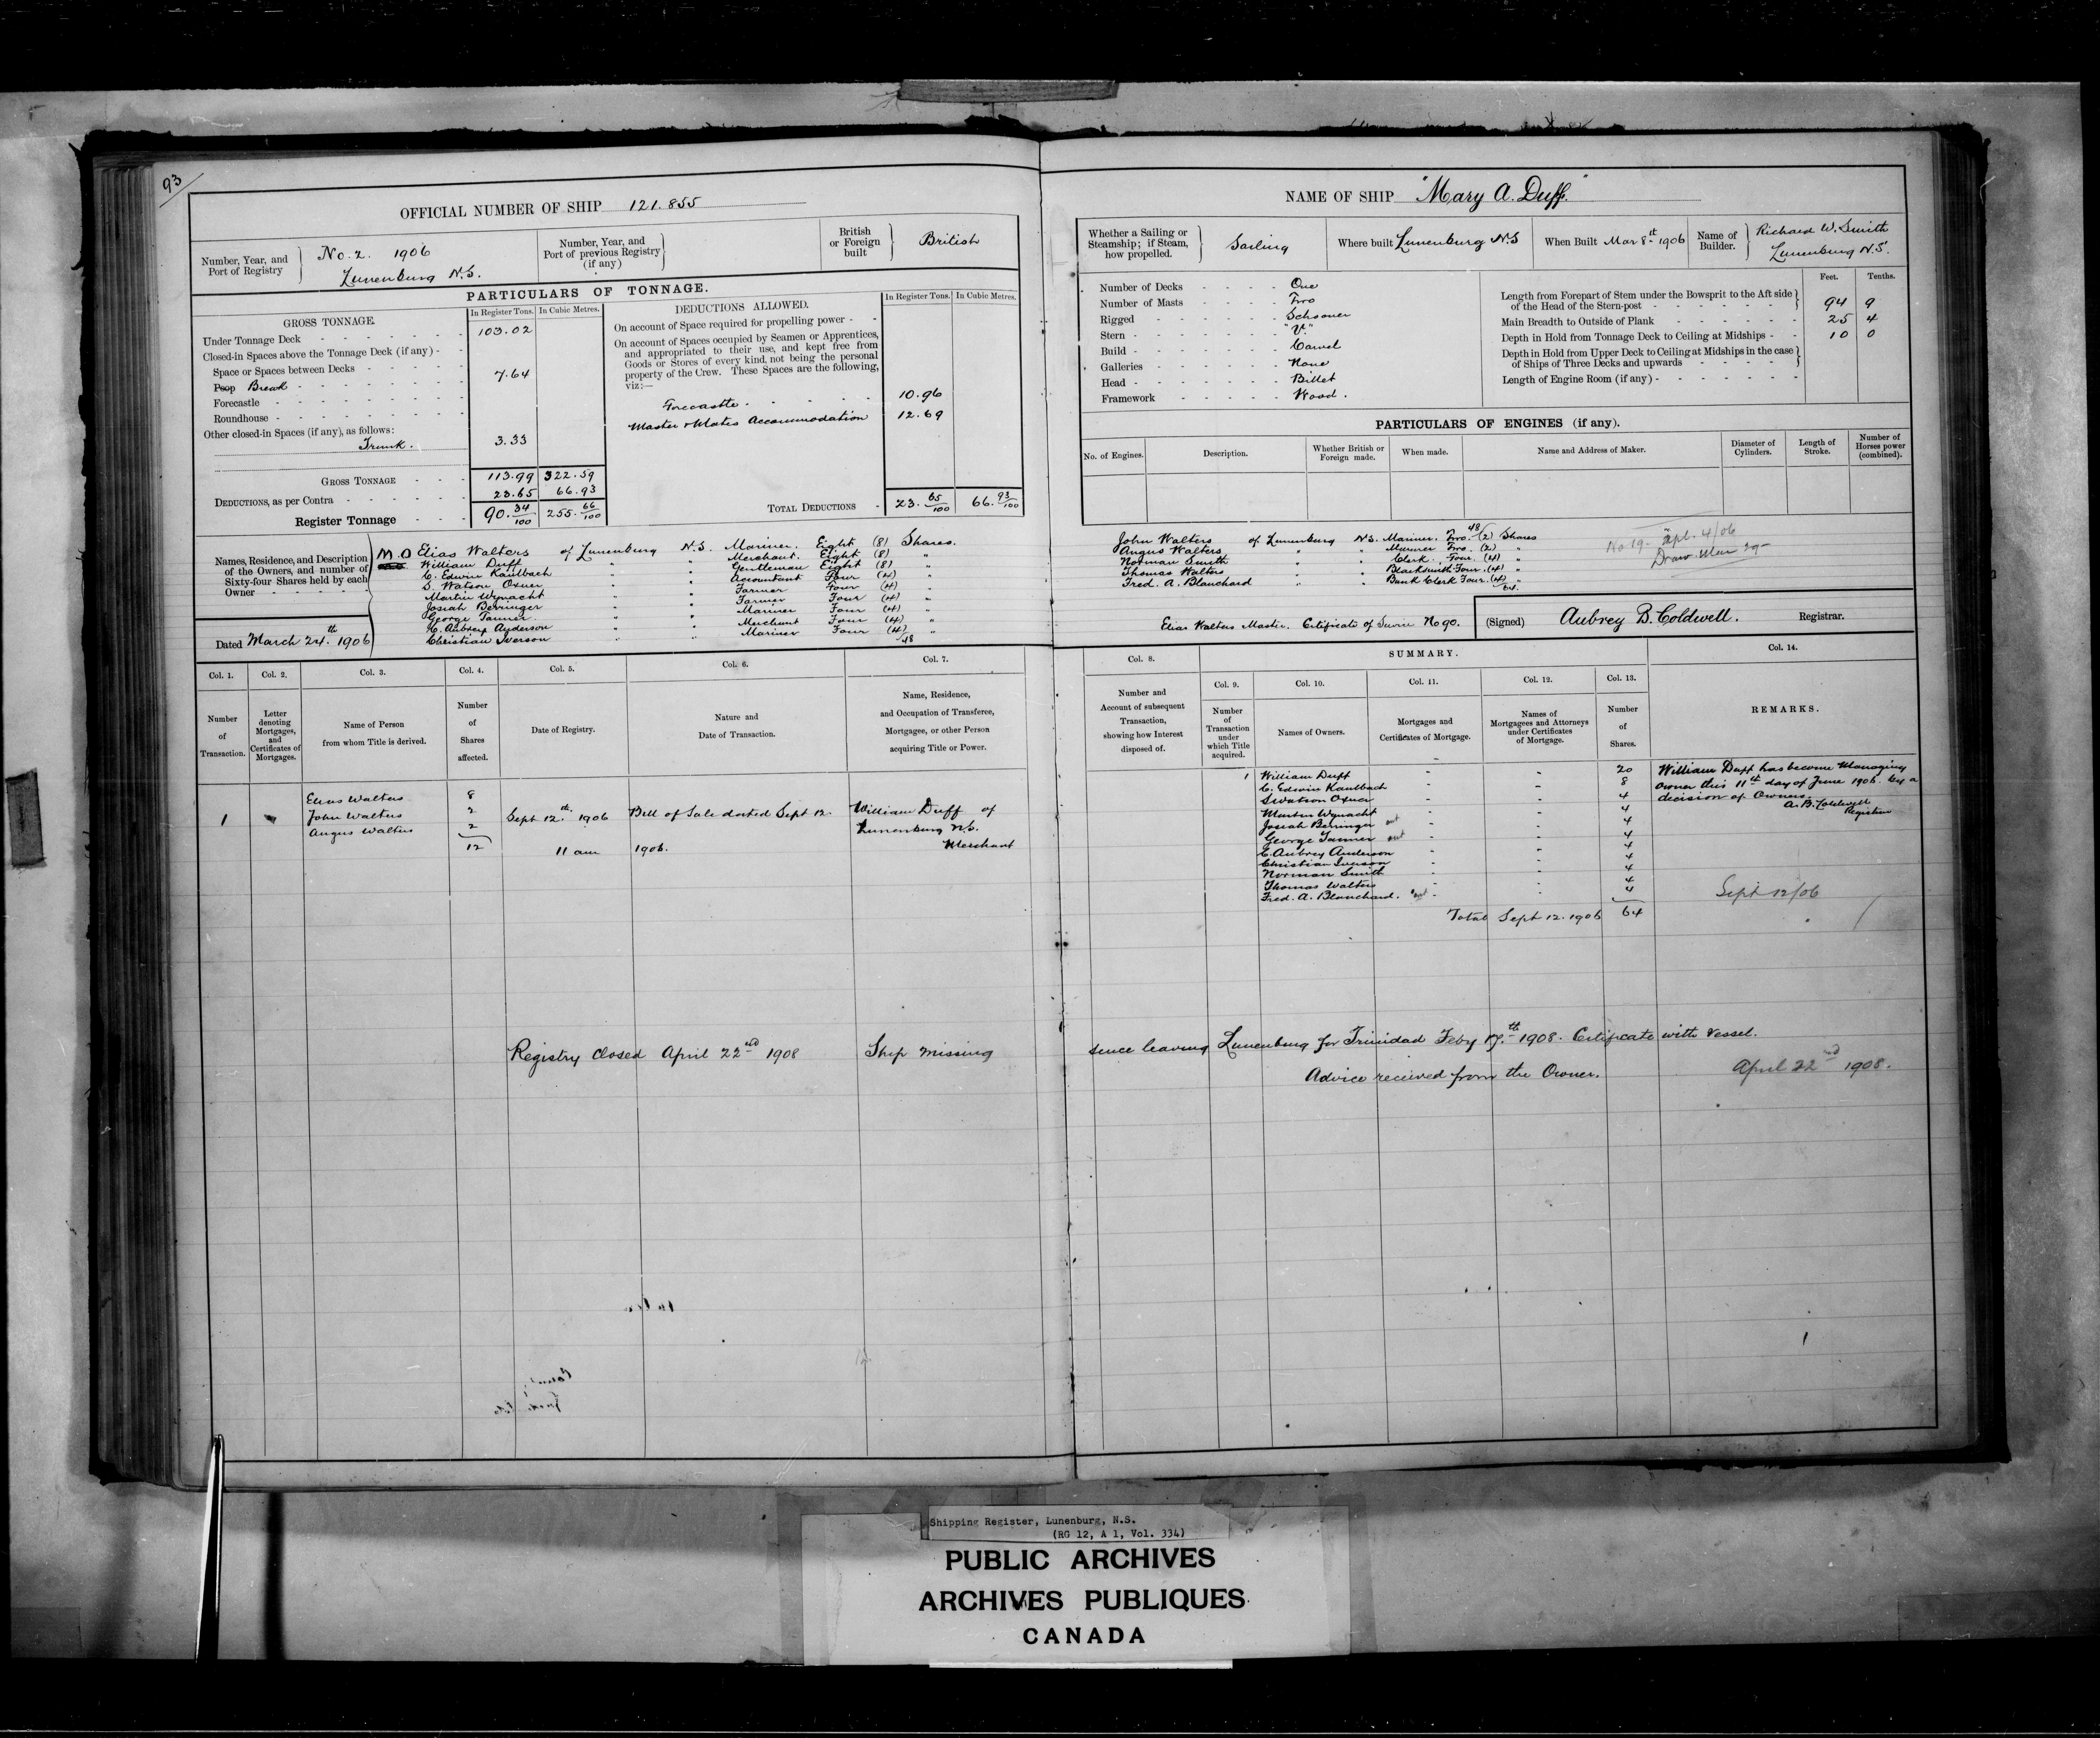 93
OFFICIAL NUMBER OF SHIP 121.855
Number, Year, and Port of Registry No. 2. 1906 Lunenburg N.S.
Number, Year, and Port of previous Registry (if any)
British or Foreign built British
PARTICULARS OF TONNAGE.
GROSS TONNAGE. In Register Tons. In Cubic Metres.
Under Tonnage Deck 103.02
Closed-in Spaces above the Tonnage Deck (if any)
Space or Spaces between Decks
Poop Break 7.64
Forecastle
Roundhouse
Other closed-in Spaces (if any), as follows:
Trunk. 3.33
GROSS TONNAGE 113.99 322.59
DEDUCTIONS, as per Contra 23.65 66.93
Register Tonnage 90. 34/100 255. 66/100
DEDUCTIONS ALLOWED. In Register Tons. In Cubic Metres.
On account of Space required for propelling power
On account of Spaces occupied by Seamen or Apprentices,
and appropriated to their use, and kept free from
Goods or Stores of every kind, not being the personal
property of the Crew. These Spaces are the following,
viz:—
Forecastle. 10.96
Master & Mates Accommodation 12.69
TOTAL DEDUCTIONS 23. 65/100 66. 93/100
Names, Residence, and Description of the Owners, and number of Sixty-four Shares held by each Owner
M.O Elias Walters of Lunenburg N.S. Mariner. Eight (8) Shares.
William Duff " " Merchant. Eight (8) "
C. Edwin Kaulbach " " Gentleman Eight (8) "
S. Watson Oxner " " Accountant Four (4) "
Martin Wynacht " " Farmer Four (4) "
Josiah Berringer " " Farmer Four (4) "
George Tanner " " Mariner Four (4) "
C. Aubrey Anderson " " Merchant Four (4) "
Christian Iverson " " Mariner Four (4) "
48
Dated March 24th 1906
Col. 1. Col. 2. Col. 3. Col. 4. Col. 5. Col. 6. Col. 7.
Number of Transaction.
Letter denoting Mortgages, and Certificates of Mortgages.
Name of Person from whom Title is derived.
Number of Shares affected.
Date of Registry.
Nature and Date of Transaction.
Name, Residence, and Occupation of Transferee, Mortgagee, or other Person acquiring Title or Power.
Elias Walters 8
1 John Walters 2 Sept 12th 1906 Bill of Sale dated Sept 12. William Duff of
Angus Walters 2 Lunenburg N.S.
12 11 am 1906. Merchant
NAME OF SHIP "Mary A. Duff."
Whether a Sailing or Steamship; if Steam, how propelled. Sailing
Where built Lunenburg N.S
When Built Mar 8th 1906
Name of Builder. Richard W. Smith Lunenburg N.S.
Number of Decks One
Number of Masts Two
Rigged Schooner
Stern "V."
Build Carvel
Galleries None
Head Billet
Framework Wood.
Feet. Tenths.
Length from Forepart of Stem under the Bowsprit to the Aft side of the Head of the Stern-post 94 9
Main Breadth to Outside of Plank 25 4
Depth in Hold from Tonnage Deck to Ceiling at Midships 10 0
Depth in Hold from Upper Deck to Ceiling at Midships in the case of Ships of Three Decks and upwards
Length of Engine Room (if any)
PARTICULARS OF ENGINES (if any).
No. of Engines. Description. Whether British or Foreign made. When made. Name and Address of Maker. Diameter of Cylinders. Length of Stroke. Number of Horses power (combined).
48
John Walters of Lunenburg N.S. Mariner. Two. (2) Shares
Angus Walters " " Mariner Two. (2) "
Norman Smith " " Clerk. Four. (4) "
Thomas Walters " " Blacksmith Four. (4) "
Fred. A. Blanchard " " Bank Clerk Four. (4) "
64.
No 19 - Apl. 4/06
Elias Walters Master. Certificate of Service No 90.
(Signed) Aubrey B. Coldwell. Registrar.
Col. 8. SUMMARY. Col. 14.
Col. 9. Col. 10. Col. 11. Col. 12. Col. 13.
Number and Account of subsequent Transaction, showing how Interest disposed of.
Number of Transaction under which Title acquired.
Names of Owners.
Mortgages and Certificates of Mortgage.
Names of Mortgagees and Attorneys under Certificates of Mortgage.
Number of Shares.
REMARKS.
1 William Duff - - 20
C. Edwin Kaulbach - - 8
S Watson Oxner - - 4
Martin Wynacht - - 4
Josiah Berringer out - - 4
George Tanner out - - 4
C. Aubrey Anderson - - 4
Christian Iverson - - 4
Norman Smith - - 4
Thomas Walters - - 4
Fred. A. Blanchard. out - - 4
Total Sept 12. 1906 64
William Duff has become Managing
owner this 11th day of June 1906. by a
decision of Owners.
A. B. Coldwell
Registrar
Sept 12/06
Registry closed April 22nd 1908 Ship missing since leaving Lunenburg for Trinidad Feby 17th 1908. Certificate with Vessel.
Advice received from the Owner. April 22nd 1908.
Shipping Register, Lunenburg, N.S.
(RG 12, A 1, Vol. 334)
PUBLIC ARCHIVES
ARCHIVES PUBLIQUES
CANADA